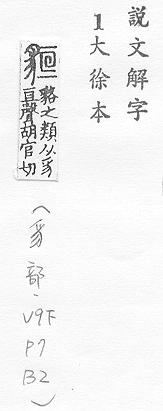 說文解字
1大徐本
貆
貉之類从豸
亘聲胡官切
(豸部.V9下
P7
B2)